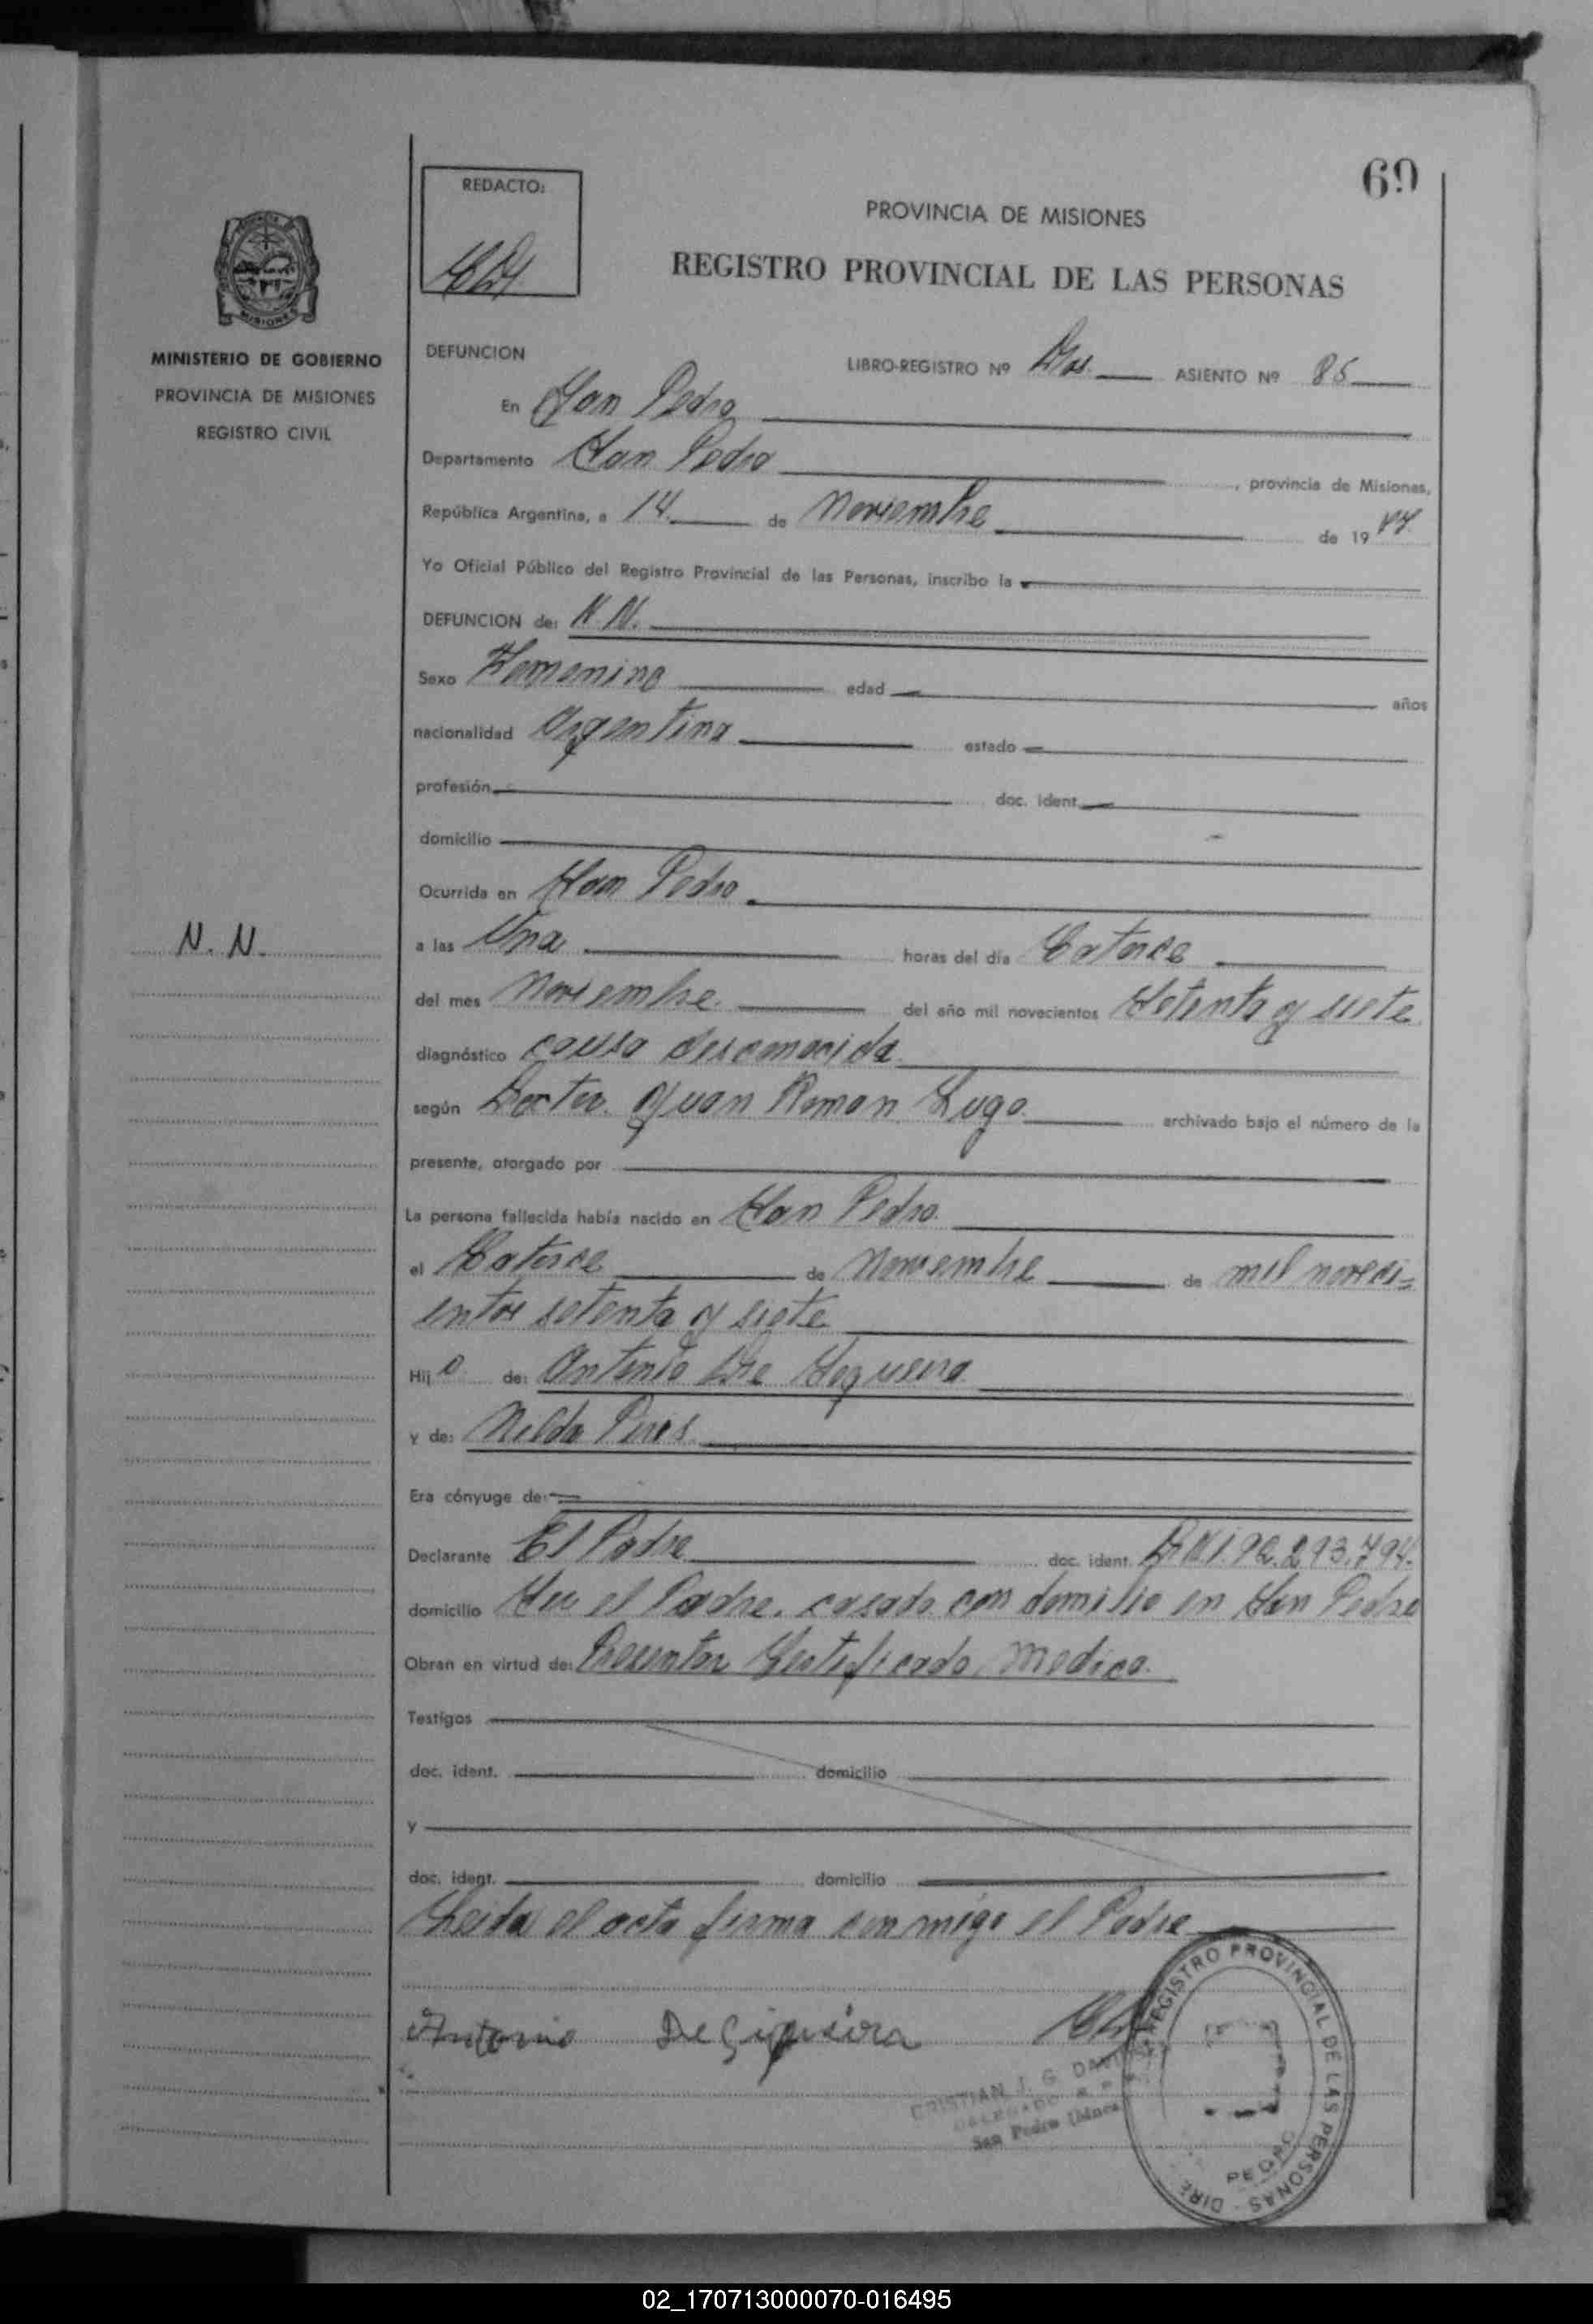 69
REDACTO:
PROVINCIA DE MISIONES
REGISTRO PROVINCIAL DE LAS PERSONAS
MISIONES
MINISTERIO DE GOBIERNO
PROVINCIA DE MISIONES
REGISTRO CIVIL
DEFUNCION LIBRO-REGISTRO Nº Dos. ASIENTO Nº 85
En San Pedro
Departamento San Pedro, provincia de Misiones,
República Argentina, a 14 de Noviembre de 1977
Yo Oficial Público del Registro Provincial de las Personas, inscribo la
DEFUNCION de: N.N.
Sexo Femenino edad años
nacionalidad Argentina estado
profesión doc. ident.
domicilio
Ocurrida en San Pedro
N. N.
a las Una horas del día Catorce
del mes Noviembre del año mil novecientos Setenta y siete
diagnóstico causa desconocida
según Doctor Juan Roman Lugo archivado bajo el número de la
presente, otorgado por
La persona fallecida había nacido en San Pedro
el Catorce de Noviembre de mil noveci=
entos setenta y siete
Hija de: Antonio De Sequeira
y de: Nelda Pires
Era cónyuge de:
Declarante El Padre doc. ident. D.N.I. 92.293.794.
domicilio Ser el Padre, casado con domilio en San Pedro
Obran en virtud de: Presentar Certificado Medico.
Testigos
doc. ident. domicilio
y
doc. ident. domicilio
Leida el acta firma conmigo el Padre
Antonio De Siqueira
CRISTIAN J. G.
DELEGADO
San Pedro (Mnes
REGISTRO PROVINCIAL DE LAS PERSONAS - DIRE
PEDRO
02_170713000070-016495